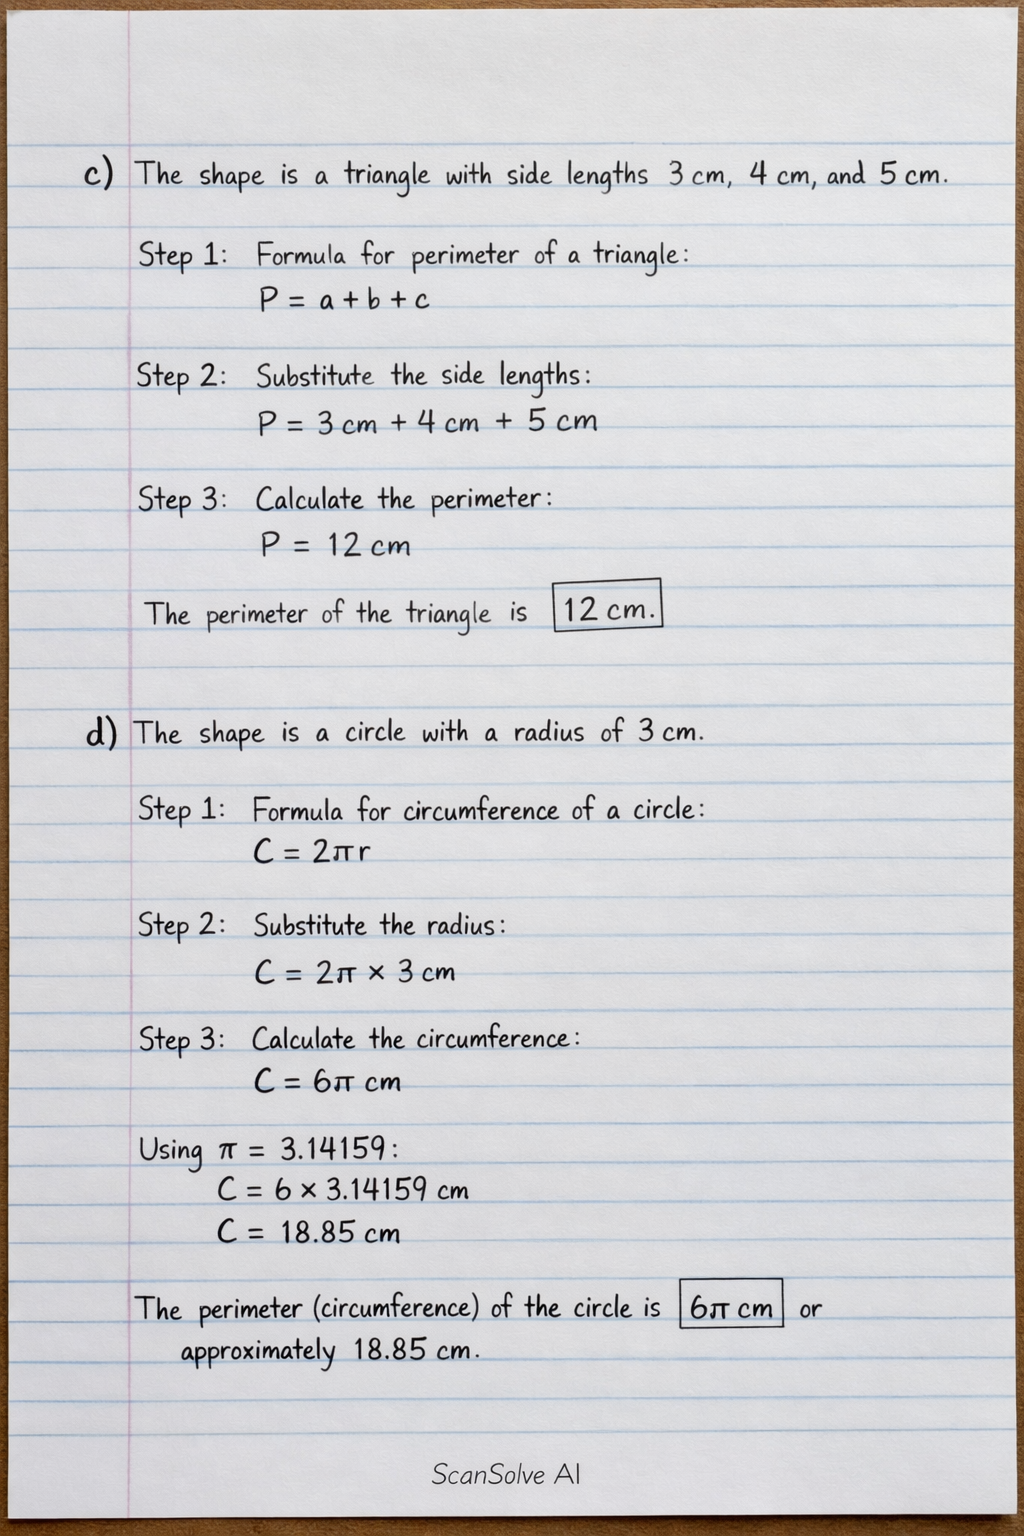 c) The shape is a triangle with side lengths 3 cm, 4 cm, and 5 cm.
Step 1: Formula for perimeter of a triangle:
P = a + b + c
Step 2: Substitute the side lengths:
P = 3 cm + 4 cm + 5 cm
Step 3: Calculate the perimeter:
P = 12 cm
The perimeter of the triangle is 12 cm.
d) The shape is a circle with a radius of 3 cm.
Step 1: Formula for circumference of a circle:
C = 2πr
Step 2: Substitute the radius:
C = 2π × 3 cm
Step 3: Calculate the circumference:
C = 6π cm
Using π = 3.14159:
C = 6 × 3.14159 cm
C = 18.85 cm
The perimeter (circumference) of the circle is 6π cm or
approximately 18.85 cm.
ScanSolve AI